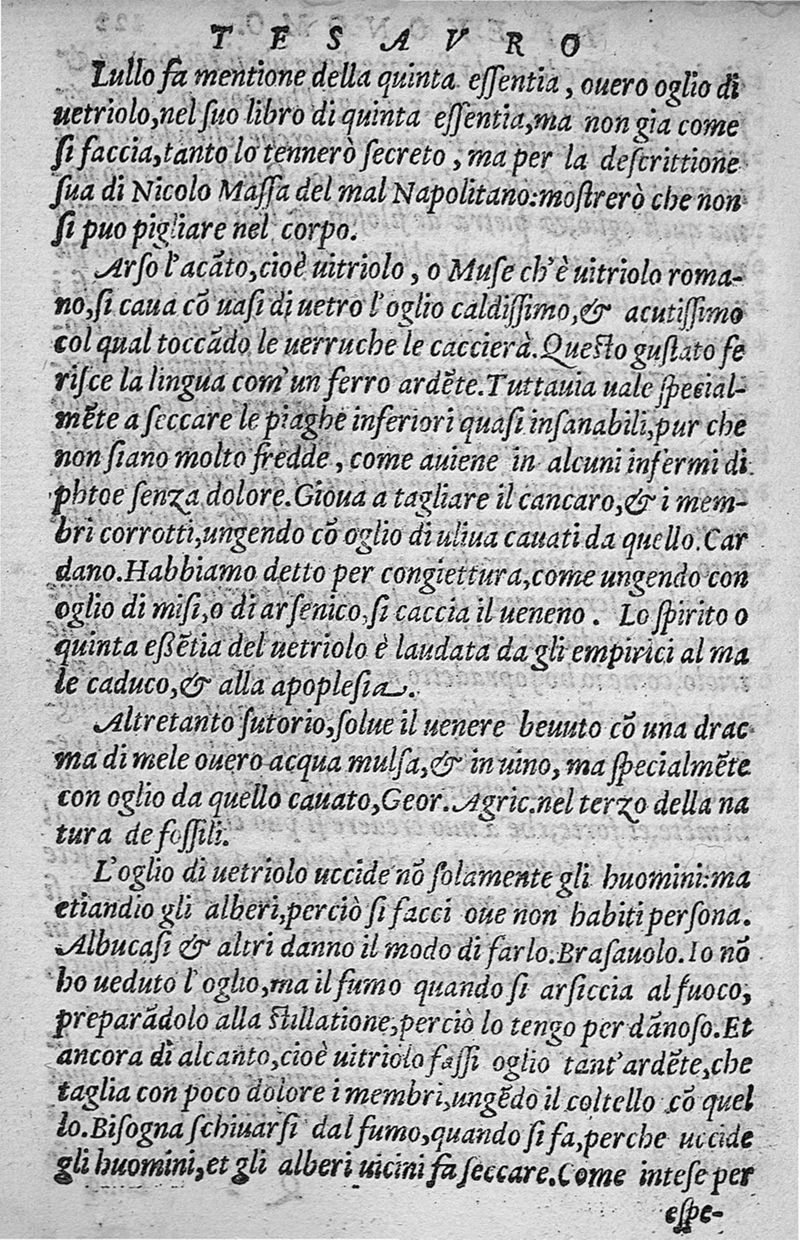 T E S A V R O
Lullo fa mentione della quinta eſſentia, ouero oglio di
uetriolo,nel ſuo libro di quinta eſſentia,ma non gia come
ſi faccia,tanto lo tennerò ſecreto, ma per la deſcrittione
ſua di Nicolo Maſſa del mal Napolitano:moſtrerò che non
ſi puo pigliare nel corpo.
Arſo l'acãto,cioè uitriolo, o Muſe ch'è uitriolo roma-
no,ſi caua cõ uaſi di uetro l'oglio caldiſſimo,& acutiſſimo
col qual toccãdo le uerruche le caccierà.Queſto guſtato fe
riſce la lingua com'un ferro ardẽte.Tuttauia uale ſpecial-
mẽte a ſeccare le piaghe inferiori quaſi inſanabili,pur che
non ſiano molto fredde, come auiene in alcuni infermi di
phtoe ſenza dolore.Gioua a tagliare il cancaro,& i mem-
bri corrotti,ungendo cõ oglio di uliua cauati da quello.Car
dano.Habbiamo detto per congiettura,come ungendo con
oglio di miſi,o di arſenico,ſi caccia il ueneno. Lo ſpirito o
quinta eßẽtia del uetriolo è laudata da gli empirici al ma
le caduco,& alla apopleſia.
Altretanto ſutorio,ſolue il uenere beuuto cõ una drac
ma di mele ouero acqua mulſa,& in uino, ma ſpecialmẽte
con oglio da quello cauato,Geor. Agric.nel terzo della na
tura de foſſili.
L'oglio di uetriolo uccide nõ ſolamente gli huomini:ma
etiandio gli alberi,perciò ſi facci oue non habiti perſona.
Albucaſi & altri danno il modo di farlo.Braſauolo.Io nõ
ho ueduto l'oglio,ma il fumo quando ſi arſiccia al fuoco,
preparãdolo alla ſtillatione,perciò lo tengo per dãnoſo.Et
ancora di alcanto,cioè uitriolo faſſi oglio tant'ardẽte,che
taglia con poco dolore i membri,ungẽdo il coltello cõ quel
lo.Biſogna ſchiuarſi dal fumo,quando ſi fa,perche uccide
gli huomini,et gli alberi uicini fa ſeccare.Come inteſe per
eſpe-